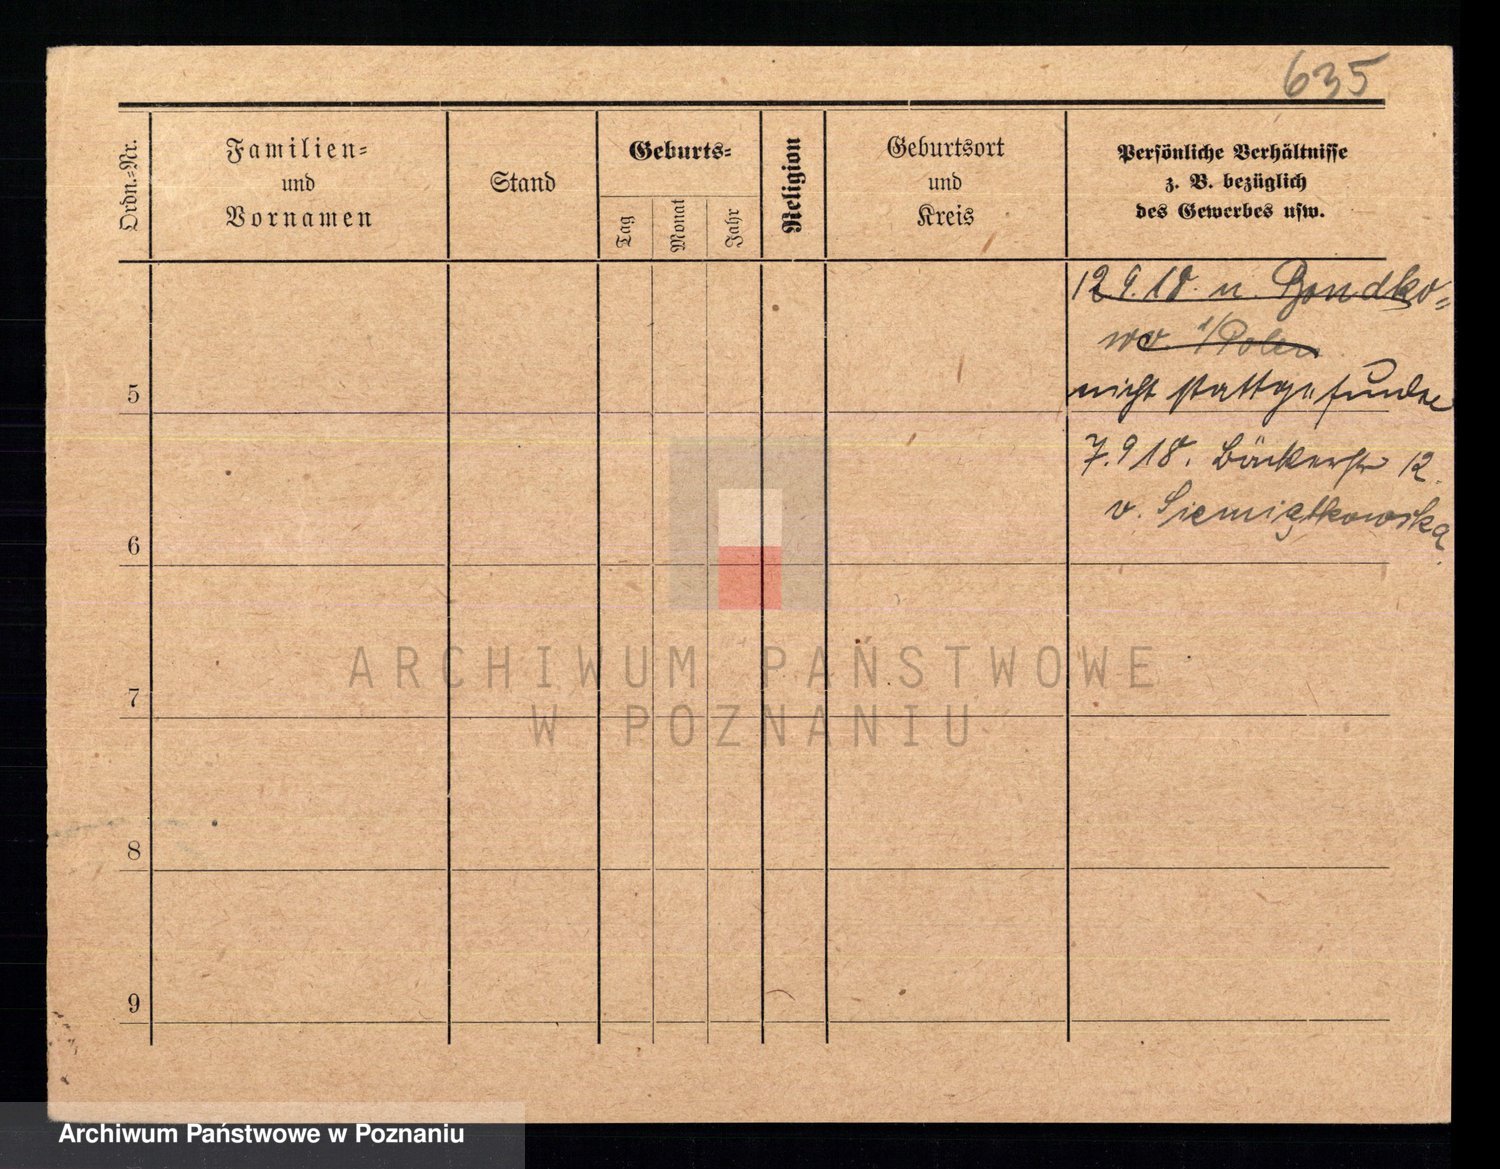 635
Ordn.=Nr.
Familien=
und
Vornamen
Stand
Geburts=
Tag
Monat
Jahr
Religion
Geburtsort
und
Kreis
Persönliche Verhältnisse
z. B. bezüglich
des Gewerbes usw.
12.9.18. n.
wo i/Polen
nicht stattgefunden
5
7.9.18. Bäckerstr 12.
v. Siemiątkowska
6
7
8
9
ARCHIWUM PAŃSTWOWE
W POZNANIU
Archiwum Państwowe w Poznaniu